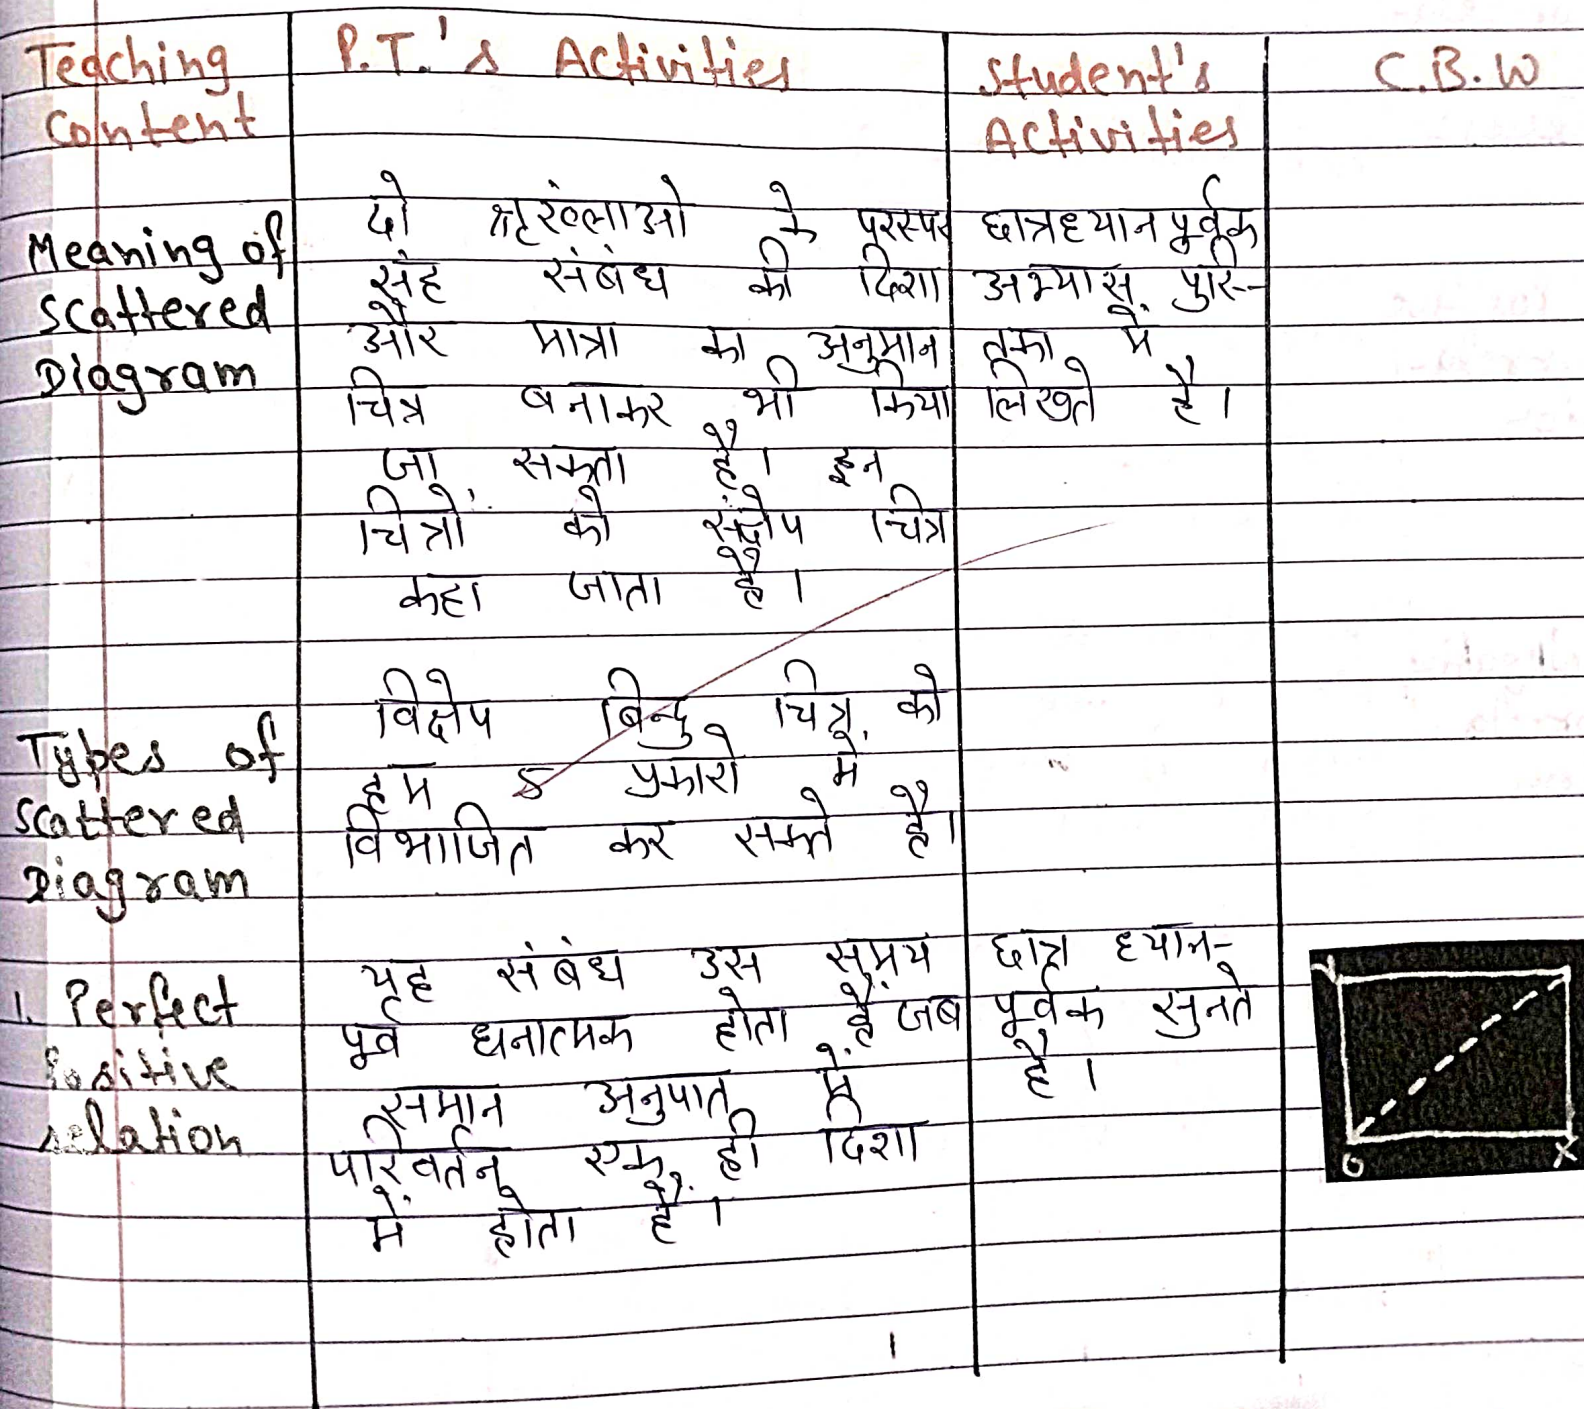 Teaching Content
P.T.'s Activities
Student's Activities
C.B.W
Meaning of
Scattered
Diagram
दो श्रृरंखलाओ के परस्पर
संह संबंध की दिशा
और मात्रा का अनुमान
चित्र बनाकर भी किया
जा सकता है। इन
चित्रों को संक्षेप चित्र
कहा जाता है।
छात्र ध्यान पूर्वक
अभ्यास पुस्-
तका में
लिखते है।
Types of
Scattered
Diagram
विक्षेप बिन्दु चित्र को
हम 5 प्रकारो में
विभाजित कर सकते है।
1. Perfect
Positive
relation
यह संबंध उस समय
पूर्व धनात्मक होता है जब
समान अनुपात में
परिवर्तन एक ही दिशा
में होता है।
छात्र ध्यान-
पूर्वक सुनते
है।
Y
O X